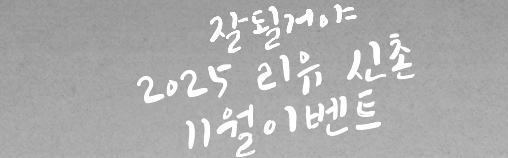 잘될거야
2025 리유 신촌
11월이벤트